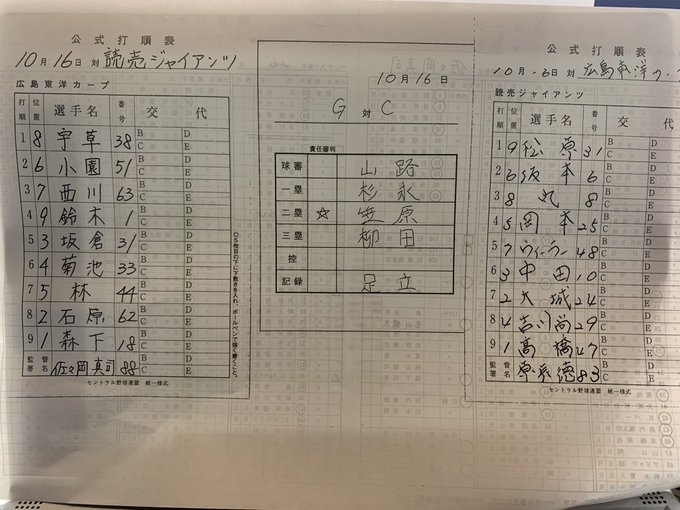 公式打順表
10月16日 対 読売ジャイアンツ
広島東洋カープ
打順 位置 選手名 番号 交代
1 8 宇草 38 B D C E
2 6 小園 51 B D C E
3 7 西川 63 B D C E
4 9 鈴木 1 B D C E
5 3 坂倉 31 B D C E
6 4 菊池 33 B D C E
7 5 林 44 B D C E
8 2 石原 62 B D C E
9 1 森下 18 B D C E
監督署名 佐々岡真司 88 B D C E
セントラル野球連盟 統一様式
◎5枚目の下に下敷きを入れ、ボールペンで強く書くこと。
10月16日
G 対 C
責任審判
球審 山路
一塁 杉永
二塁 ☆ 笠原
三塁 柳田
控
記録 足立
公式打順表
10月16日 対 広島東洋カープ
読売ジャイアンツ
打順 位置 選手名 番号 交代
1 9 松原 31 B D C E
2 6 坂本 6 B D C E
3 8 丸 8 B D C E
4 5 岡本 25 B D C E
5 7 ウィーラー 48 B D C E
6 3 中田 10 B D C E
7 2 大城 24 B D C E
8 4 吉川尚 29 B D C E
9 1 高橋 47 B D C E
監督署名 原辰徳 83 B D C E
セントラル野球連盟 統一様式